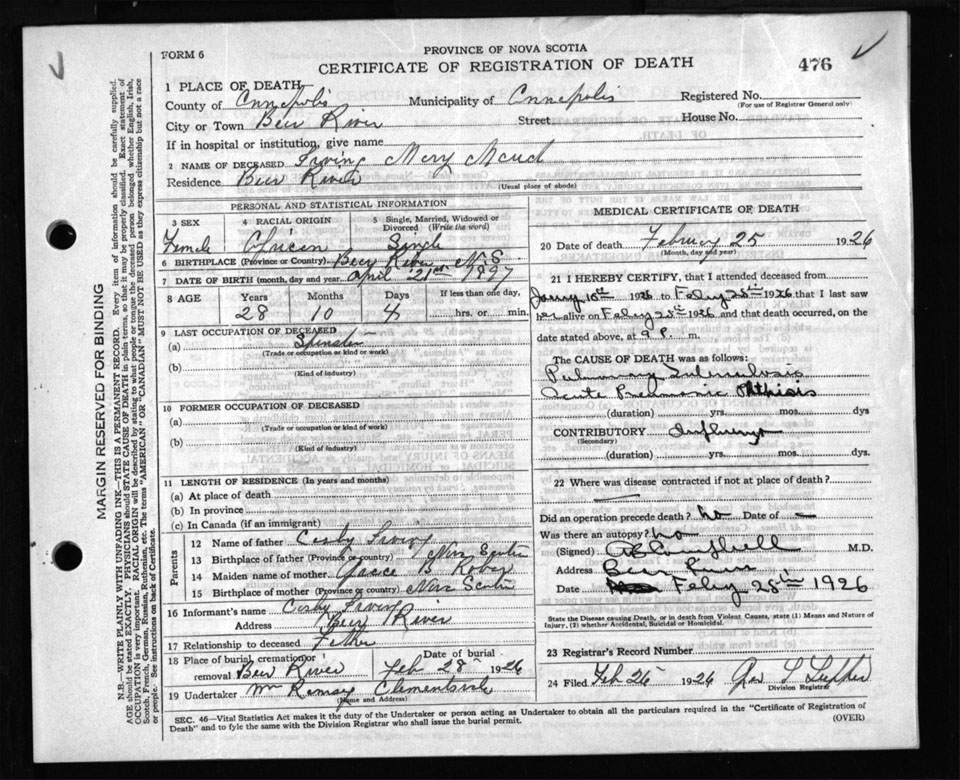 FORM 6
PROVINCE OF NOVA SCOTIA
CERTIFICATE OF REGISTRATION OF DEATH
476
1 PLACE OF DEATH
County of Annapolis Municipality of Annapolis Registered No.
(For use of Registrar General only)
City or Town Bear River Street House No.
If in hospital or institution, give name
2 NAME OF DECEASED Irving Mary Maud
Residence Bear River
(Usual place of abode)
PERSONAL AND STATISTICAL INFORMATION
3 SEX 4 RACIAL ORIGIN 5 Single, Married, Widowed or Divorced (Write the word)
Female African Single
6 BIRTHPLACE (Province or Country) Bear River N.S.
7 DATE OF BIRTH (month, day and year) April 21st 1897
8 AGE Years Months Days If less than one day,
28 10 4 hrs. or min.
9 LAST OCCUPATION OF DECEASED
(a) Spinster
(Trade or occupation or kind or work)
(b)
(Kind of industry)
10 FORMER OCCUPATION OF DECEASED
(a)
(Trade or occupation or kind of work)
(b)
(Kind of industry)
11 LENGTH OF RESIDENCE (In years and months)
(a) At place of death
(b) In province
(c) In Canada (if an immigrant)
Parents
12 Name of father Irving
13 Birthplace of father (Province or country) Nova Scotia
14 Maiden name of mother B.
15 Birthplace of mother (Province or country) Nova Scotia
16 Informant's name Irving
Address Bear River
17 Relationship to deceased Father
18 Place of burial, cremation or removal Bear River Date of burial Feb 28 1926
19 Undertaker Wm Ramsay Clementsvale
(Name and Address)
MEDICAL CERTIFICATE OF DEATH
20 Date of death February 25 1926
(Month, day and year)
21 I HEREBY CERTIFY, that I attended deceased from
1926 to Feby 25th 1926 that I last saw
her alive on Feby 25th 1926 and that death occurred, on the
date stated above, at 9 P. m.
The CAUSE OF DEATH was as follows:
Pulmonary Tuberculosis
Acute Pneumonic Phthisis
(duration) yrs. mos. dys
CONTRIBUTORY Influenza
(Secondary)
(duration) yrs. mos. dys.
22 Where was disease contracted if not at place of death?
Did an operation precede death? no Date of —
Was there an autopsy? no
(Signed) Campbell M.D.
Address Bear River
Date Feby 25th 1926
State the Disease causing Death, or in death from Violent Causes, state (1) Means and Nature of
Injury, (2) whether Accidental, Suicidal or Homicidal.
23 Registrar's Record Number
24 Filed Feb 26 1926 Geo
Division Registrar
SEC. 46—Vital Statistics Act makes it the duty of the Undertaker or person acting as Undertaker to obtain all the particulars required in the "Certificate of Registration of
Death" and to fyle the same with the Division Registrar who shall issue the burial permit.
(OVER)
MARGIN RESERVED FOR BINDING
N.B.—WRITE PLAINLY WITH UNFADING INK—THIS IS A PERMANENT RECORD. Every item of information should be carefully supplied.
AGE should be stated EXACTLY. PHYSICIANS should STATE CAUSE OF DEATH in plain terms, so that it may be properly classified. Exact statement of
OCCUPATION is very important. RACIAL ORIGIN will be described by stating to what people or tongue the deceased person belonged whether English, Irish,
Scotch, French, German, Russian, Ruthenian, etc. The terms "AMERICAN" or "CANADIAN" MUST NOT BE USED as they express citizenship but not a race
or people. See instructions on back of Certificate.